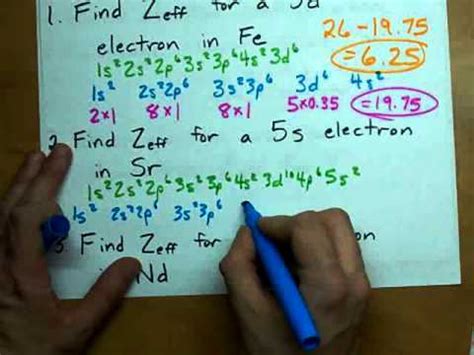 1. Find Zeff for a 3d
electron in Fe
26 - 19.75
= 6.25
1s² 2s² 2p⁶ 3s² 3p⁶ 4s² 3d⁶
1s² 2s² 2p⁶ 3s² 3p⁶ 3d⁶ 4s²
2×1 8×1 8×1 5×0.35 = 19.75
2. Find Zeff for a 5s electron
in Sr
1s² 2s² 2p⁶ 3s² 3p⁶ 4s² 3d¹⁰ 4p⁶ 5s²
1s² 2s² 2p⁶ 3s² 3p⁶
3. Find Zeff for
Nd